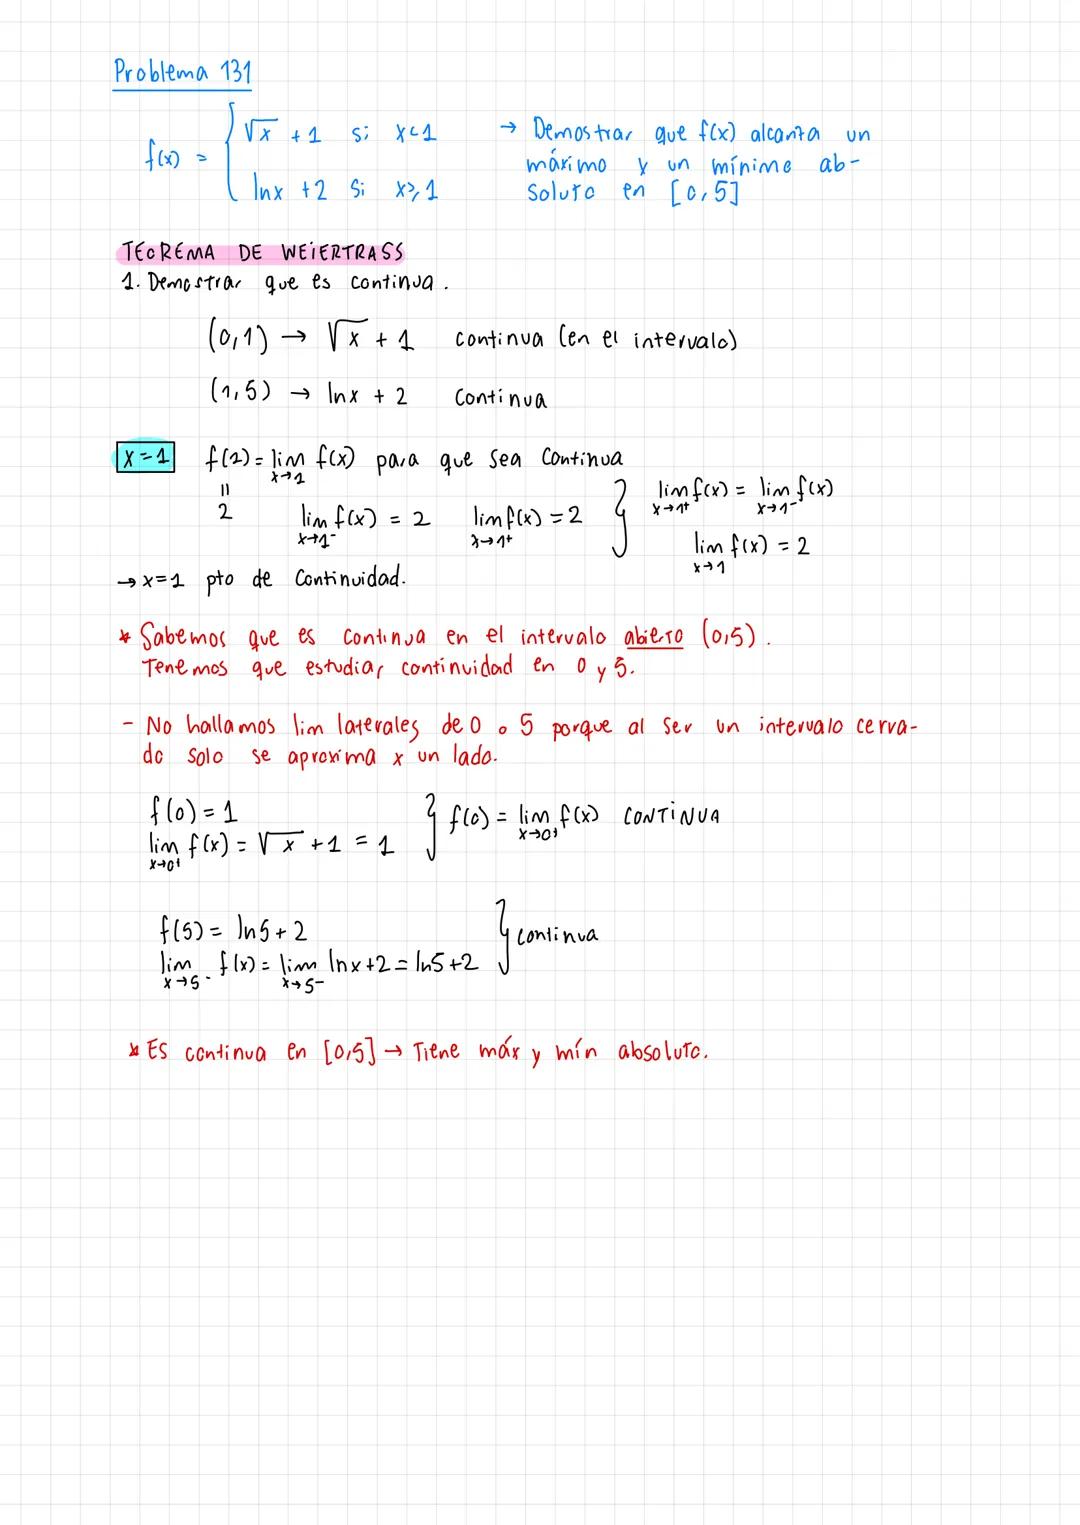 Problema 131
f(x) = { √x + 1 si x<1 → Demostrar que f(x) alcanza un
máximo y un mínimo ab-
ln x + 2 si x≥1 soluto en [0,5]
TEOREMA DE WEIERTRASS
1. Demostrar que es continua.
(0,1) → √x + 1 continua (en el intervalo)
(1,5) → ln x + 2 continua
x=1 f(1) = lim f(x) para que sea continua
x→1
=
2 lim f(x) = 2 lim f(x) = 2 } lim f(x) = lim f(x)
x→1⁻ x→1⁺ x→1⁺ x→1⁻
lim f(x) = 2
x→1
→ x=1 pto de continuidad.
* Sabemos que es continua en el intervalo abierto (0,5).
Tenemos que estudiar continuidad en 0 y 5.
- No hallamos lim laterales de 0 o 5 porque al ser un intervalo cerra-
do solo se aproxima x un lado.
f(0) = 1 } f(0) = lim f(x) CONTINUA
x→0⁺
lim f(x) = √x + 1 = 1
x→0⁺
f(5) = ln5 + 2 } continua
lim f(x) = lim ln x + 2 = ln5 + 2
x→5⁻ x→5⁻
* Es continua en [0,5] → Tiene máx y mín absoluto.